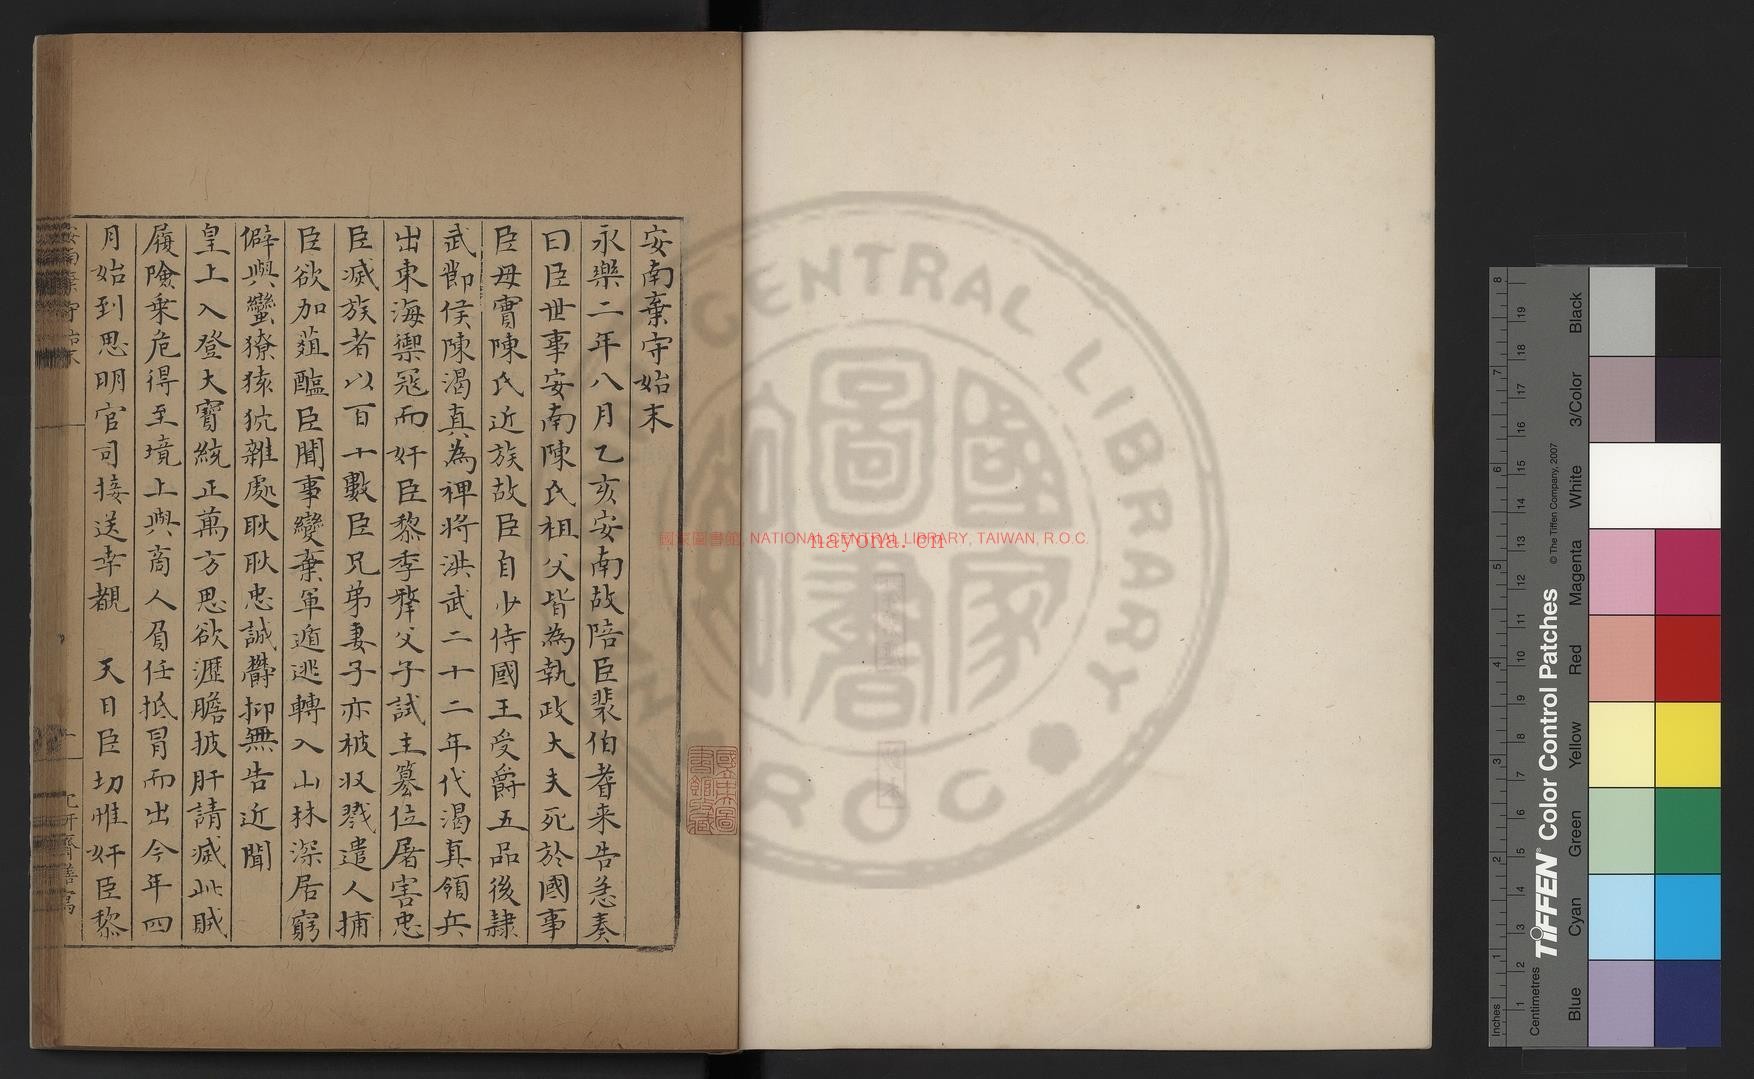 安南棄守始末
永樂二年八月乙亥安南故陪臣裴伯耆来告急奏
曰臣世事安南陳氏祖父皆為執政大夫死於國事
臣母實陳氏近族故臣自少侍國王受爵五品後隷
武節侯陳渴真為裨将洪武二十二年代渴真領兵
出東海禦冦而奸臣黎季犛父子試主簒位屠害忠
臣滅族者以百十數臣兄弟妻子亦被収戮遣人捕
臣欲加葅醢臣聞事變棄軍遁逃轉入山林深居窮
僻與蠻獠猿狖雜處耿耿忠誠欝抑無告近聞
皇上入登大寳統正萬方思欲瀝膽披肝請滅此賊
履險乗危得至境上與商人負任抵冒而出今年四
月始到思明官司接送幸覩 天日臣切惟奸臣黎
國家圖書館, NATIONAL CENTRAL LIBRARY, TAIWAN, R.O.C.
nayona.cn
NATIONAL CENTRAL LIBRARY
R.O.C
國家圖書館
國立中央圖書館收藏
Black
3/Color
White
Magenta
Red
Yellow
Green
Cyan
Blue
TIFFEN® Color Control Patches
© The Tiffen Company, 2007
Centimetres
Inches